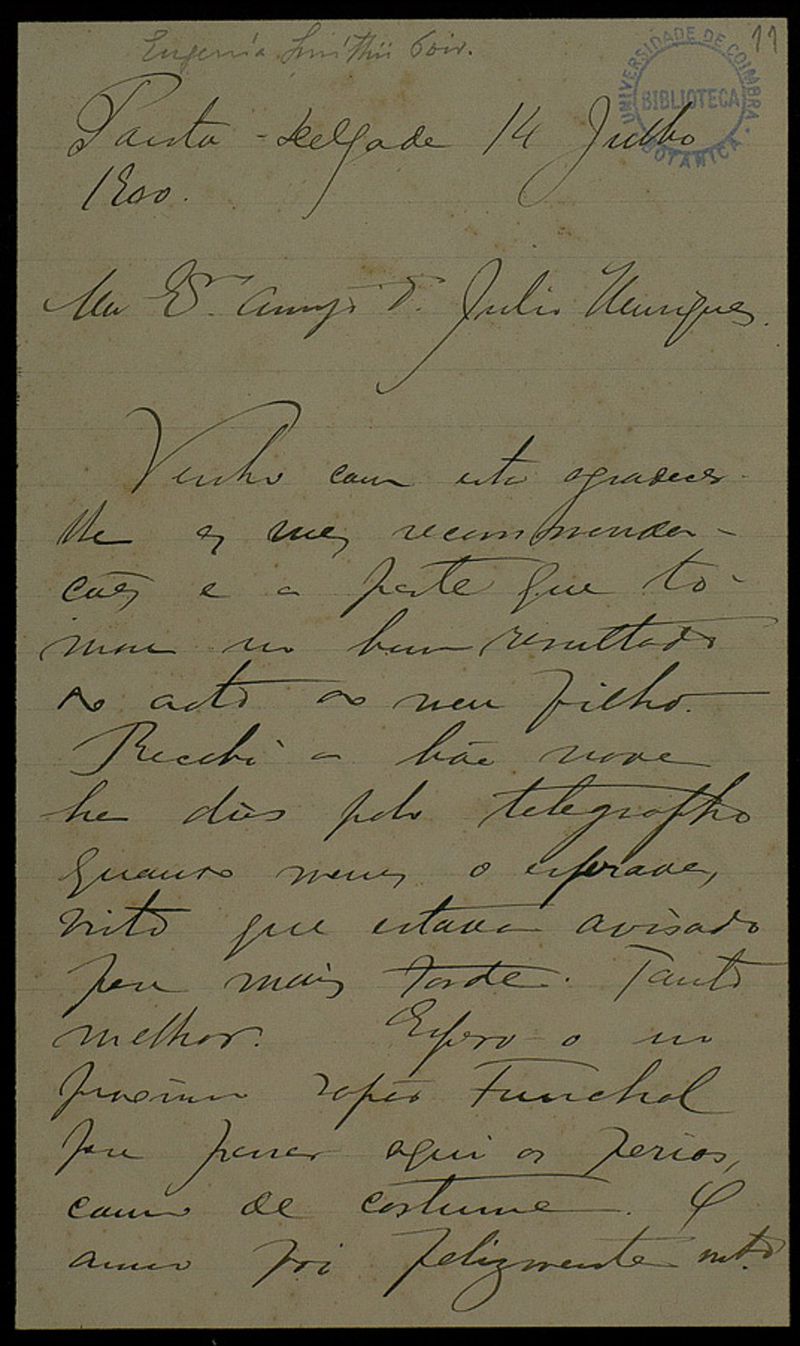 11
UNIVERSIDADE DE COIMBRA
BIBLIOTECA
BOTANICA
Ponta-Delgada 14 Julho
1900.
Meu Ex. Amigo Julio Henriques.
Venho com esta agradecer-
lhe as recommenda-
ções e a parte que to-
mou no bom resultado
do acto do meu filho.
Recebi a bôa nova
ha dias pelo telegrapho
quando menos o esperava,
visto que estava avisado
para mais tarde. Tanto
melhor. Espero-o no
proximo vapor Funchal
para passar aqui as ferias,
como de costume. O
anno foi felizmente mto.